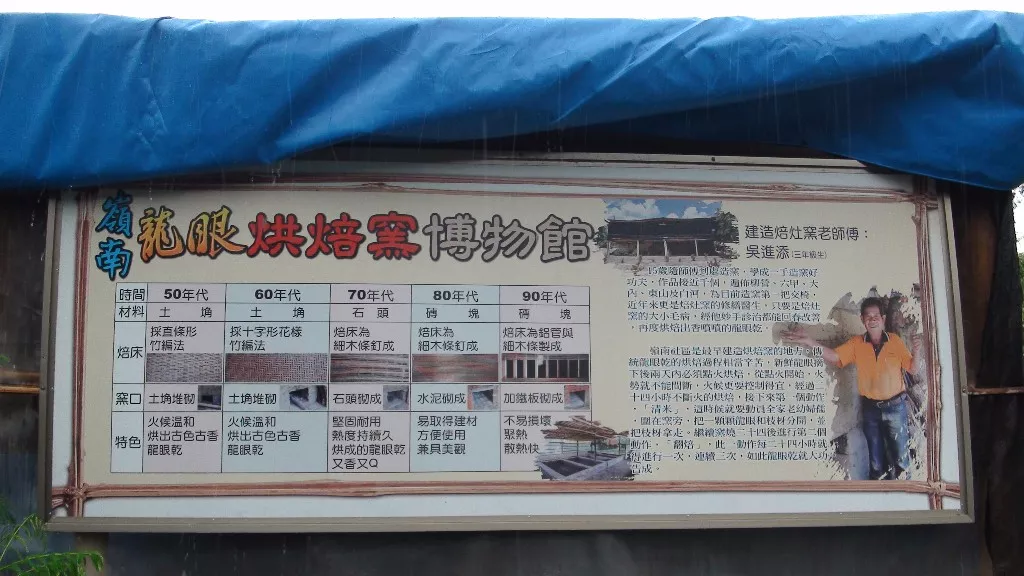 嶺南龍眼烘焙窯博物館
時間 50年代 60年代 70年代 80年代 90年代
材料 土角 土角 石頭 磚塊 磚塊
焙床 採直條形竹編法 採十字形花樣竹編法 焙床為細木條釘成 焙床為細木條釘成 焙床為鋁管與細木條製成
窯口 土埆堆砌 土埆堆砌 石頭砌成 水泥砌成 加鐵板砌成
特色 火候溫和烘出古色古香龍眼乾 火候溫和烘出古色古香龍眼乾 堅固耐用熱度持續久烘成的龍眼乾又香又Q 易取得建材方便使用兼具美觀 不易損壞聚熱散熱快
建造焙灶窯老師傅：
吳進添(三年級生)
15歲隨師傅到處造窯，學成一手造窯好
功夫，作品接近千個，遍佈楠營、六甲、大
內、東山及白河，為目前造窯第一把交椅，
近年來更是焙灶窯的修繕醫生，只要是焙灶
窯的大小毛病，經他妙手診治都能回春改善
，再度烘焙出香噴噴的龍眼乾。
嶺南社區是最早建造烘焙窯的地方，傳
統龍眼乾的烘焙過程相當辛苦，新鮮龍眼摘
下後兩天內必須點火烘焙，從點火開始，火
勢就不能間斷，火候更要控制得宜，經過二
十四小時不斷火的烘焙，接下來第一個動作
，「清米」，這時候就要動員全家老幼婦孺
，圍在窯旁，把一顆顆龍眼和枝枒分開，並
把枝枒拿走，繼續窯燒二十四後進行第二個
動作，「翻焙」，此一動作每二十四小時就
得進行一次，連續三次，如此龍眼乾就大功
告成。